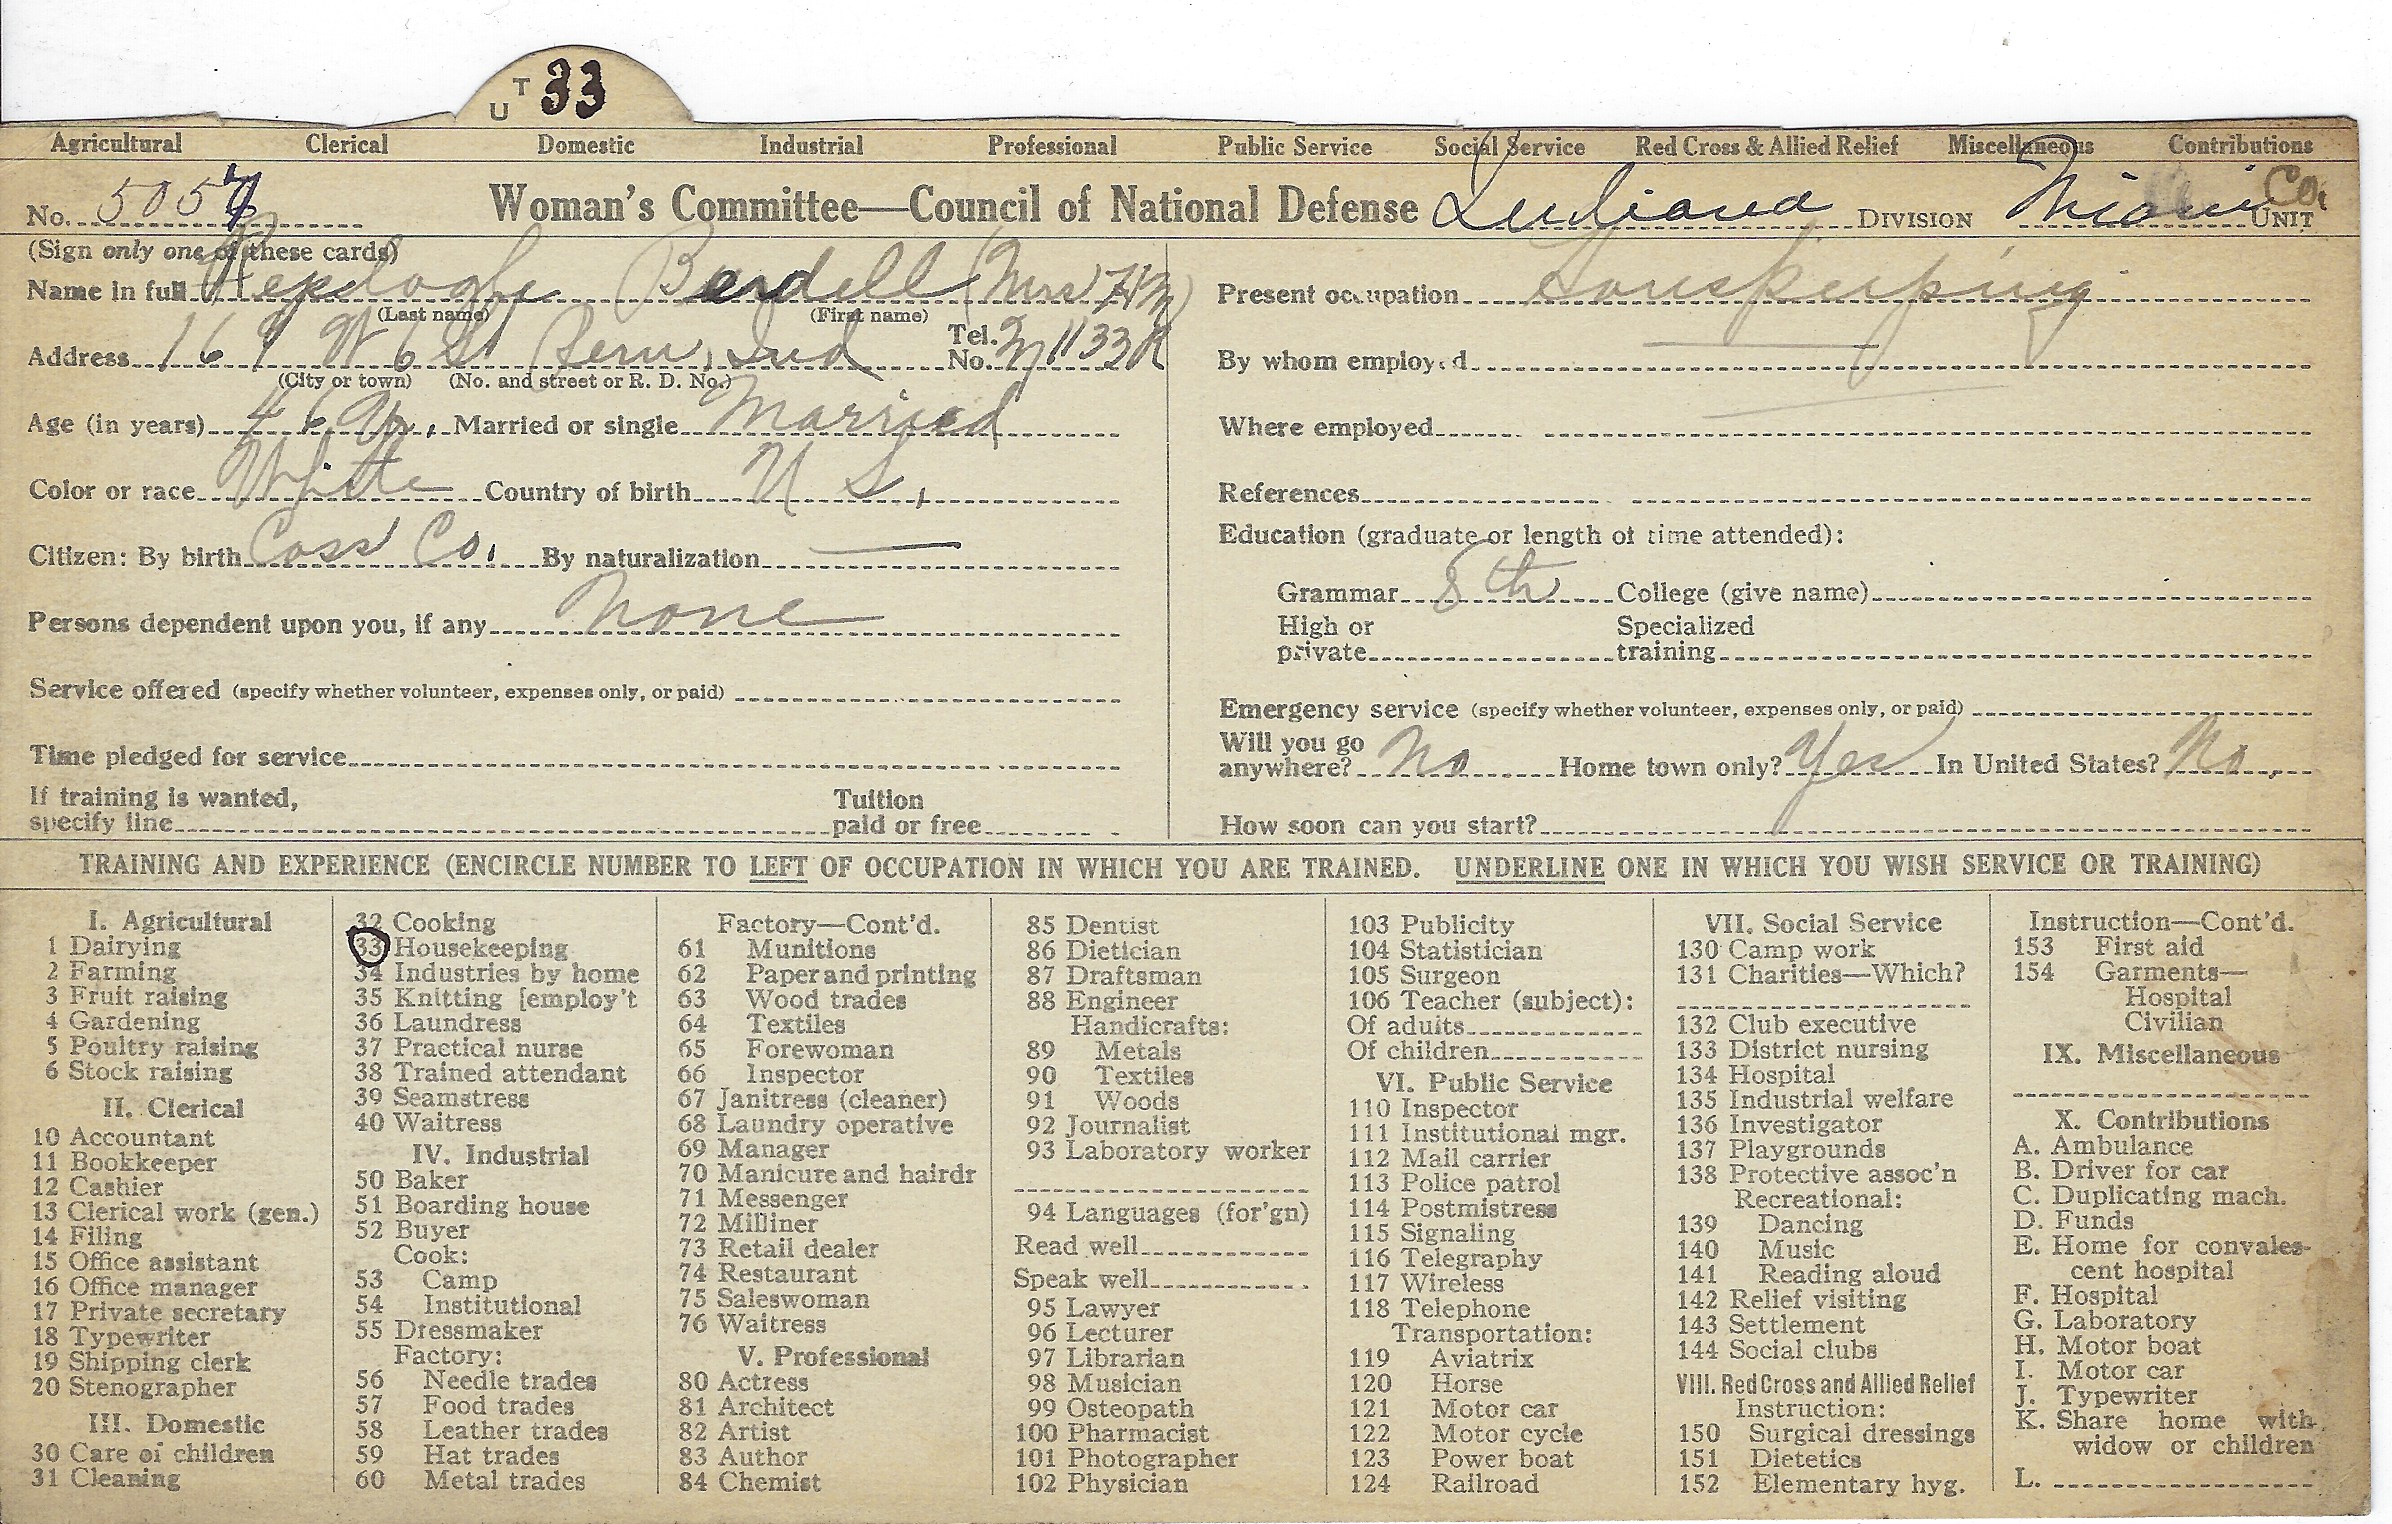 U T 33
Agricultural Clerical Domestic Industrial Professional Public Service Social Service Red Cross & Allied Relief Miscellaneous Contributions
No. 5057 Woman's Committee—Council of National Defense Indiana DIVISION Miami Co. UNIT
(Sign only one of these cards)
Name in full Replogle Berdell (Mrs H M)
(Last name) (First name)
Address 169 W 6 St Peru, Ind Tel. No. 1133 R
(City or town) (No. and street or R. D. No.)
Age (in years) 46 yr. Married or single Married
Color or race White Country of birth U S.
Citizen: By birth Cass Co. By naturalization —
Persons dependent upon you, if any None
Service offered (specify whether volunteer, expenses only, or paid)
Time pledged for service
If training is wanted, specify line Tuition paid or free
Present occupation Housekeeping
By whom employed
Where employed
References
Education (graduate or length of time attended):
Grammar 8th College (give name)
High or private Specialized training
Emergency service (specify whether volunteer, expenses only, or paid)
Will you go anywhere? No Home town only? Yes In United States? No.
How soon can you start?
TRAINING AND EXPERIENCE (ENCIRCLE NUMBER TO LEFT OF OCCUPATION IN WHICH YOU ARE TRAINED. UNDERLINE ONE IN WHICH YOU WISH SERVICE OR TRAINING)
I. Agricultural
1 Dairying
2 Farming
3 Fruit raising
4 Gardening
5 Poultry raising
6 Stock raising
II. Clerical
10 Accountant
11 Bookkeeper
12 Cashier
13 Clerical work (gen.)
14 Filing
15 Office assistant
16 Office manager
17 Private secretary
18 Typewriter
19 Shipping clerk
20 Stenographer
III. Domestic
30 Care of children
31 Cleaning
32 Cooking
33 Housekeeping
34 Industries by home
35 Knitting [employ't
36 Laundress
37 Practical nurse
38 Trained attendant
39 Seamstress
40 Waitress
IV. Industrial
50 Baker
51 Boarding house
52 Buyer
Cook:
53 Camp
54 Institutional
55 Dressmaker
Factory:
56 Needle trades
57 Food trades
58 Leather trades
59 Hat trades
60 Metal trades
Factory—Cont'd.
61 Munitions
62 Paper and printing
63 Wood trades
64 Textiles
65 Forewoman
66 Inspector
67 Janitress (cleaner)
68 Laundry operative
69 Manager
70 Manicure and hairdr
71 Messenger
72 Milliner
73 Retail dealer
74 Restaurant
75 Saleswoman
76 Waitress
V. Professional
80 Actress
81 Architect
82 Artist
83 Author
84 Chemist
85 Dentist
86 Dietician
87 Draftsman
88 Engineer
Handicrafts:
89 Metals
90 Textiles
91 Woods
92 Journalist
93 Laboratory worker
94 Languages (for'gn)
Read well
Speak well
95 Lawyer
96 Lecturer
97 Librarian
98 Musician
99 Osteopath
100 Pharmacist
101 Photographer
102 Physician
103 Publicity
104 Statistician
105 Surgeon
106 Teacher (subject):
Of adults
Of children
VI. Public Service
110 Inspector
111 Institutional mgr.
112 Mail carrier
113 Police patrol
114 Postmistress
115 Signaling
116 Telegraphy
117 Wireless
118 Telephone
Transportation:
119 Aviatrix
120 Horse
121 Motor car
122 Motor cycle
123 Power boat
124 Railroad
VII. Social Service
130 Camp work
131 Charities—Which?
132 Club executive
133 District nursing
134 Hospital
135 Industrial welfare
136 Investigator
137 Playgrounds
138 Protective assoc'n
Recreational:
139 Dancing
140 Music
141 Reading aloud
142 Relief visiting
143 Settlement
144 Social clubs
VIII. Red Cross and Allied Relief
Instruction:
150 Surgical dressings
151 Dietetics
152 Elementary hyg.
Instruction—Cont'd.
153 First aid
154 Garments—
Hospital
Civilian
IX. Miscellaneous
X. Contributions
A. Ambulance
B. Driver for car
C. Duplicating mach.
D. Funds
E. Home for convales-
cent hospital
F. Hospital
G. Laboratory
H. Motor boat
I. Motor car
J. Typewriter
K. Share home with
widow or children
L.